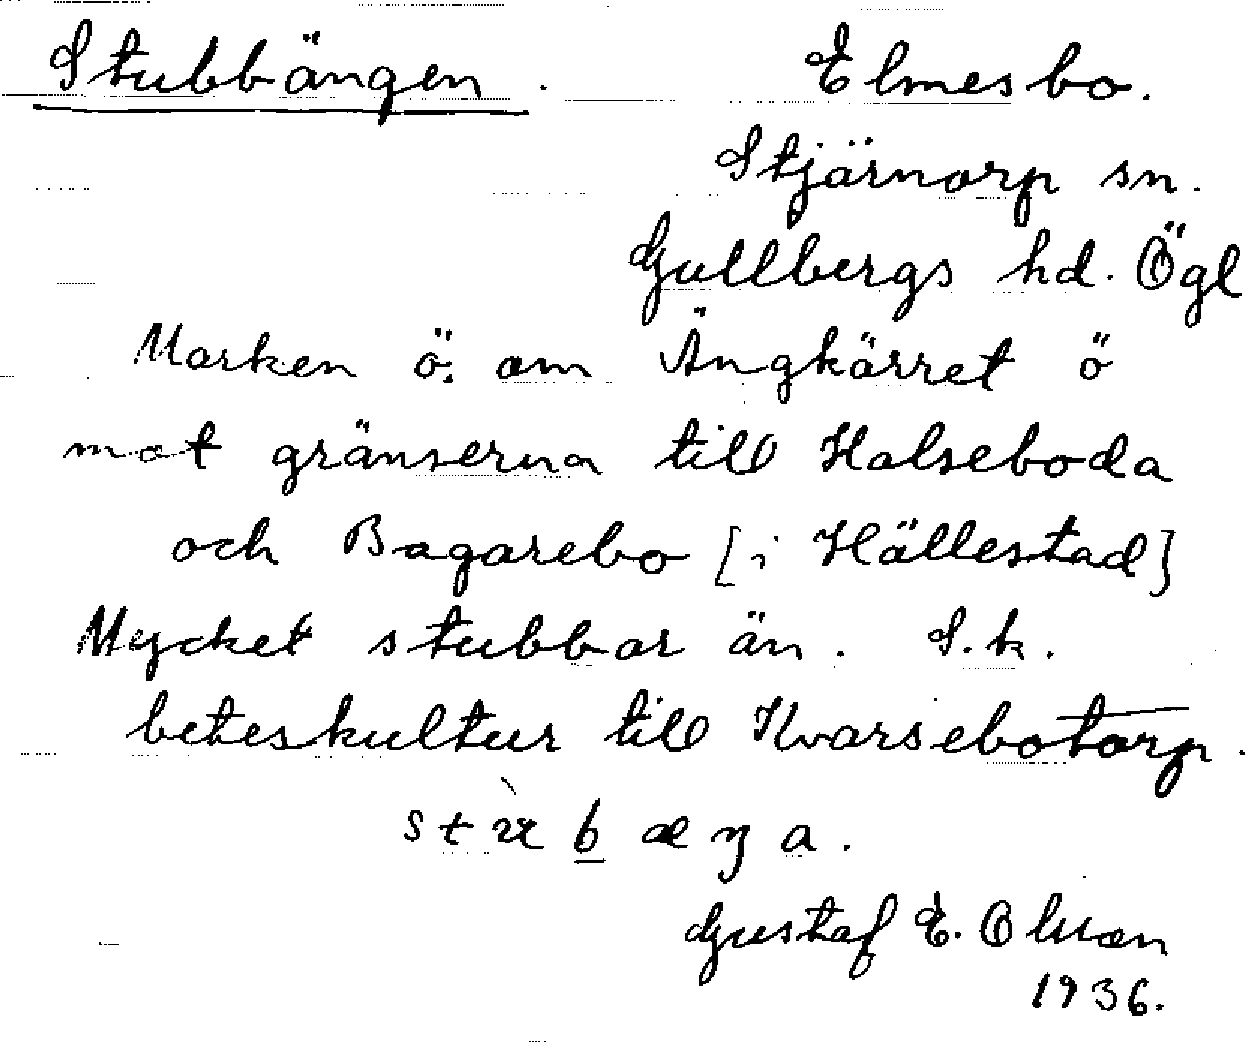 Stubbängen. Elmesbo.
Stjärnorp sn.
Gullbergs hd. Ögl
Marken ö. om Ängkärret ö
mot gränserna till Halseboda
och Bagarebo [i Hällestad]
Mycket stubbar än. S.k.
beteskultur till Kvarsebotorp.
Gustaf E. Olsson
1936.